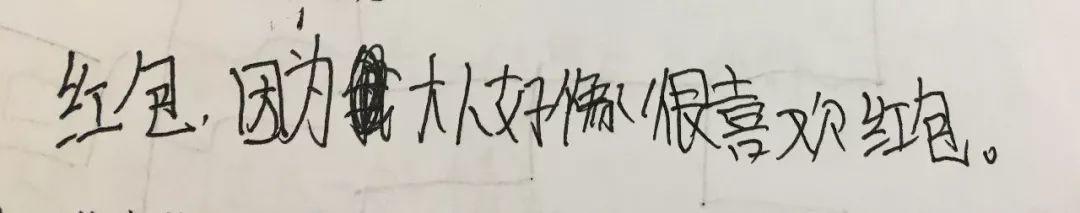 红包,因为大人好像很喜欢红包。